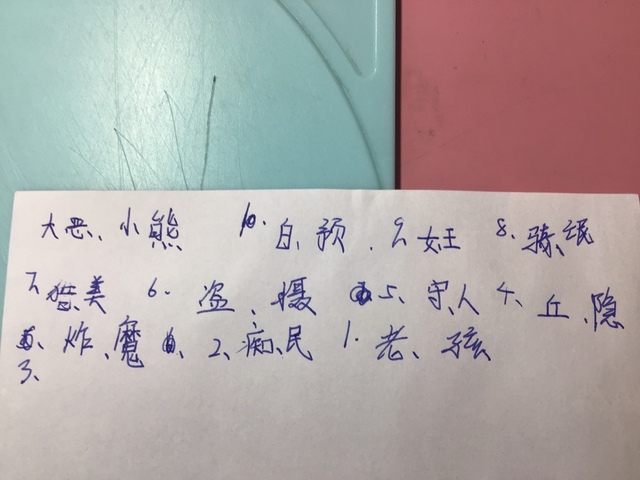 大恶、小熊 10. 白、预. 9、女王 8、骑、氓
7、猎、美 6. 盗、摄 5、守、人 4、丘、隐
、炸、魔 、2、痴、民 1. 老、孩
3、